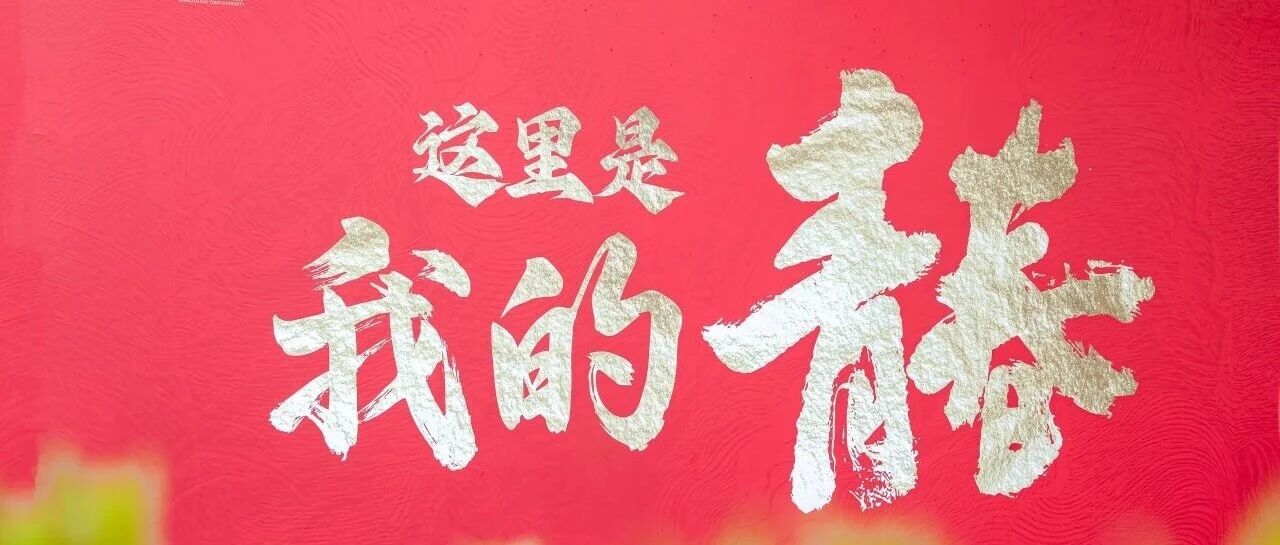 这里是
我的青春